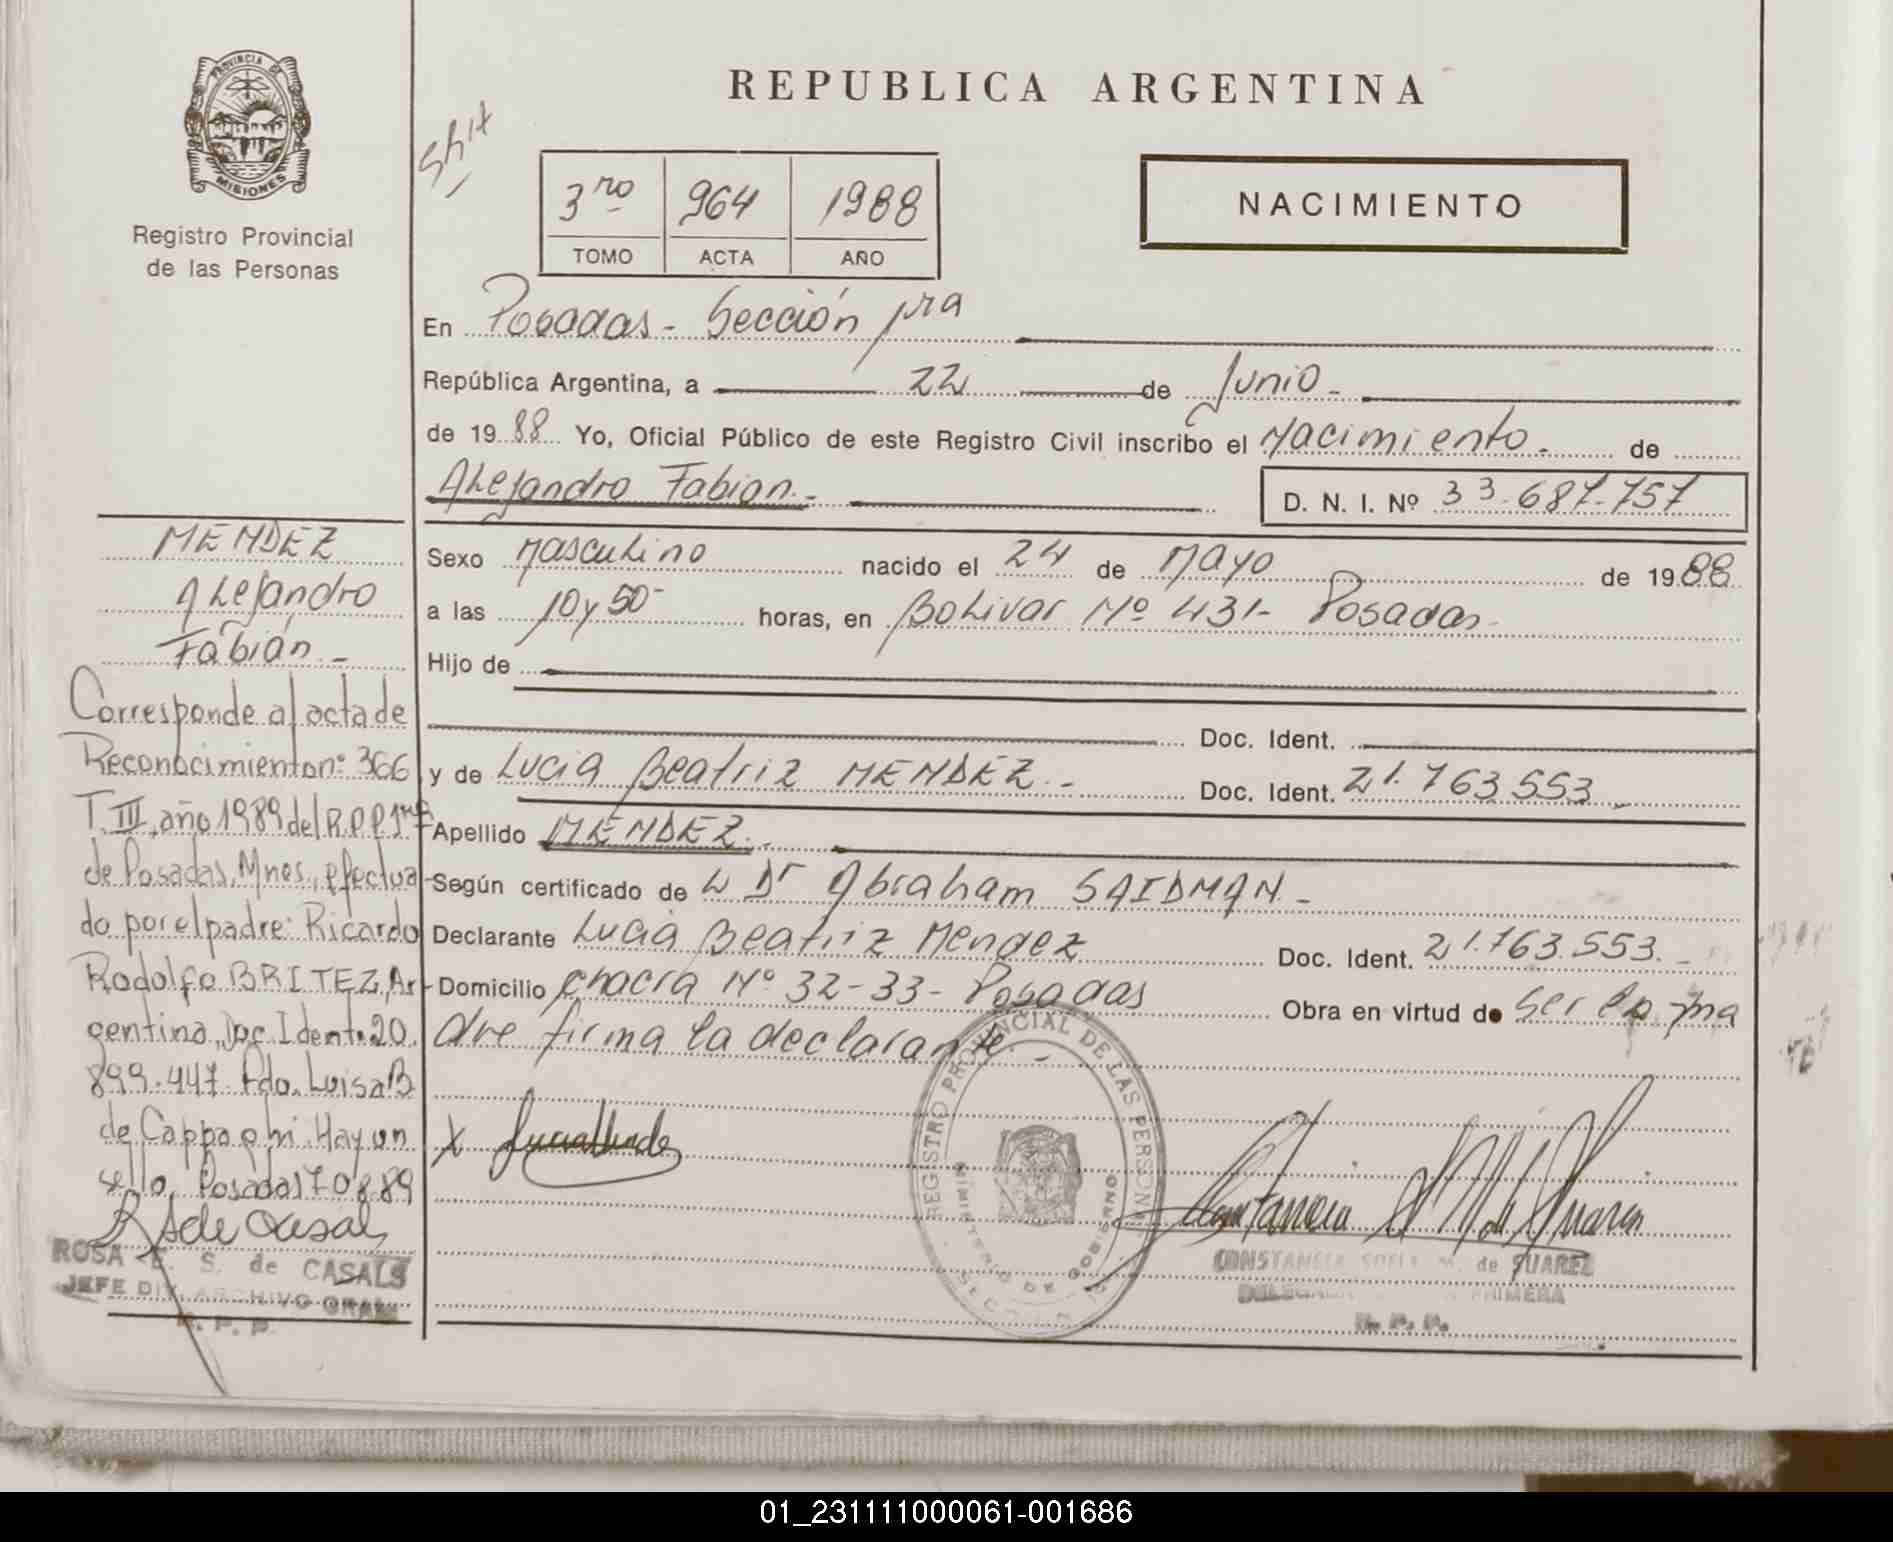 PROVINCIA DE
MISIONES
Registro Provincial
de las Personas
REPUBLICA ARGENTINA
3ro 964 1988
TOMO ACTA AÑO
NACIMIENTO
En Posadas - Sección 1ra
República Argentina, a 22 de Junio -
de 1988 Yo, Oficial Público de este Registro Civil inscribo el Nacimiento - de
Alejandro Fabian.-
D. N. I. Nº 33.687.757
Sexo Masculino nacido el 24 de Mayo de 1988
a las 10 y 50- horas, en Bolivar Nº 431- Posadas-
Hijo de
Doc. Ident.
y de Lucia Beatriz MENDEZ.- Doc. Ident. 21.763.553 -
Apellido MENDEZ.-
Según certificado de Dr Abraham SAIDMAN.-
Declarante Lucia Beatriz Mendez Doc. Ident. 21.763.553.-
Domicilio chacra Nº 32-33- Posadas Obra en virtud de ser la ma
dre firma la declarante.-
MENDEZ
Alejandro
Fabián.-
Corresponde al acta de
Reconocimiento nº 366
T. III, año 1989 del R.P.P. 1ra
de Posadas, Mnes., efectua
do por el padre: Ricardo
Rodolfo BRITEZ, Ar-
gentino, Doc. Ident. 20.
899.447. Fdo. Luisa B
de Cappachi. Hay un
sello. Posadas 7 08 89
ROSA E. S. de CASALS
JEFE DIV. ARCHIVO GRAL.
R. P. P.
X
REGISTRO PROVINCIAL DE LAS PERSONAS
MINISTERIO DE GOBIERNO
CONSTANCIA SOFIA M. de SUAREZ
PRIMERA
R. P. P.
01_231111000061-001686